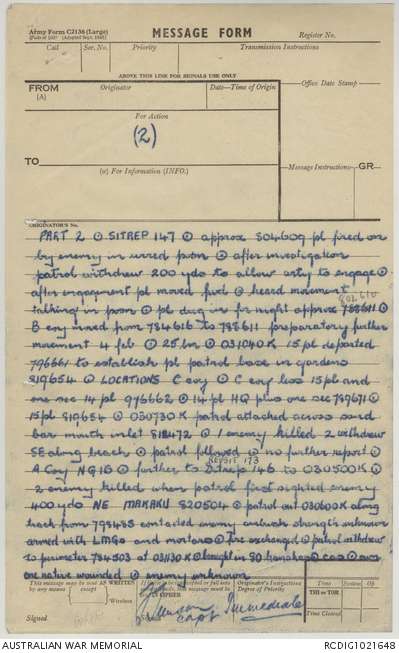 Army Form C2136 (Large)
MESSAGE FORM
Register No.
Call
Ser. No.
Priority
Transmission Instructions
ABOVE THIS LINE FOR SIGNALS USE ONLY
FROM
Originator
Date—Time of Origin
Office Date Stamp
(A)
For Action
(2)
TO
(w) For Information (INFO.)
Message Instructions
GR
ORIGINATOR'S No.
PART 2 ⊙ SITREP 147 ⊙ approx 804609 pl fired on
by enemy in wired posn ⊙ after investigation
patrol withdrew 200 yds to allow arty to engage ⊙
after engagement pl moved fwd ⊙ heard movement
802610
talking in posn ⊙ pl dug in for night approx 788611 ⊙
B coy moved from 784616 to 788611 preparatory further
movement 4 feb ⊙ 25 bn ⊙ 031040K 15 pl departed
796661 to establish pl patrol base in gardens
819654 ⊙ LOCATIONS C coy ⊙ C coy less 15 pl and
one sec 14 pl 976662 ⊙ 14 pl HQ plus one sec 789671 ⊙
15 pl 819654 ⊙ 030730K patrol attached across sand
bar mouth inlet 818472 ⊙ 1 enemy killed 2 withdrew
SE along beach ⊙ patrol followed ⊙ no further report ⊙
REPORT 173
A Coy NG 1B ⊙ further to Sitrep 146 to 030500K ⊙
2 enemy killed when patrol first sighted enemy
400 yds NE MAKAKU 820504 ⊙ patrol out 030600K along
track from 798485 contacted enemy ambush strength unknown
armed with LMGs and mortars ⊙ fire exchanged ⊙ patrol withdrew
to perimeter 784503 at 031130K ⊙ bought in 80 kanakas ⊙ cas ⊙ own
one native wounded ⊙ enemy unknown
This message may be sent AS WRITTEN
by any means
Wireless
If liable to
CIPHER
Originator's Instructions
Degree of Priority
Time
THI or TOR
Time Cleared
Immediate
Capt
Signed
AUSTRALIAN WAR MEMORIAL
RCDIG1021648